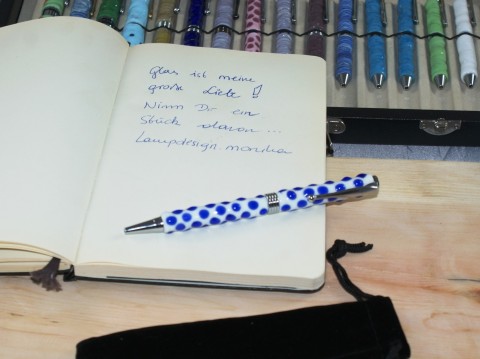 Glas ist meine
große Liebe!
Nimm Dir ein
Stück davon...
Lampdesign